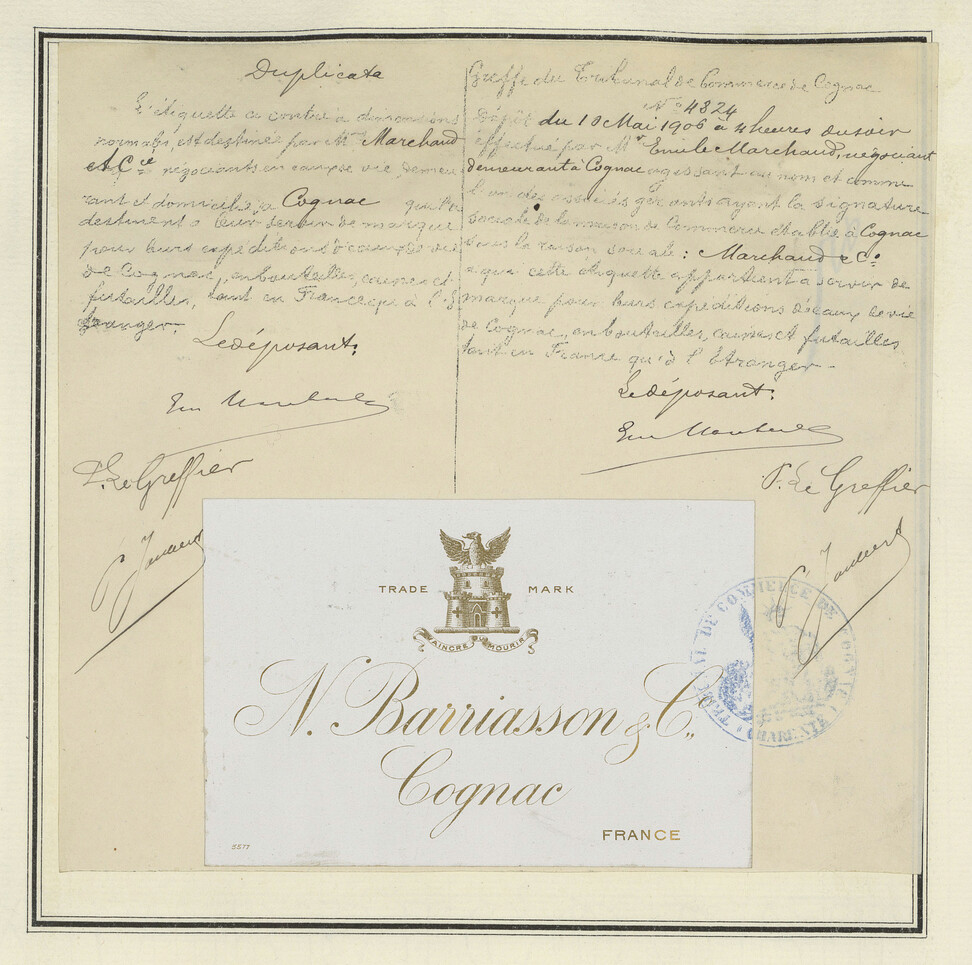 Duplicata
L'étiquette ci contre à dimensions
normales, est destinée par Mrs Marchaud
et Cie négociants en eaux de vie, demeu
rant et domiciliés à Cognac qui la
destinent à leur servir de marque
pour leurs expéditions d'eaux de vie
de Cognac, en bouteilles, caisses et
futailles, tant en France qu'à l'É
tranger.
Le déposant:
P. Le Greffier
Greffe du Tribunal de Commerce de Cognac
N° 4824
Dépôt du 10 Mai 1906 à 4 heures du soir
effectué par Mr Emile Marchaud, négociant
demeurant à Cognac agissant au nom et comme
l'un des associés gérants ayant la signature
sociale de la maison de Commerce établie à Cognac
sous la raison sociale: Marchaud & Co.
à qui cette étiquette appartient à servir de
marque pour leurs expéditions d'eaux de vie
de Cognac, en bouteilles, caisses et futailles
tant en France qu'à l'Etranger.
Le déposant:
P. Le Greffier
TRADE MARK
VAINCRE OU MOURIR
N. Barriasson & Co.,
Cognac
FRANCE
5577
TRIBUNAL DE COMMERCE DE
CHARENTE